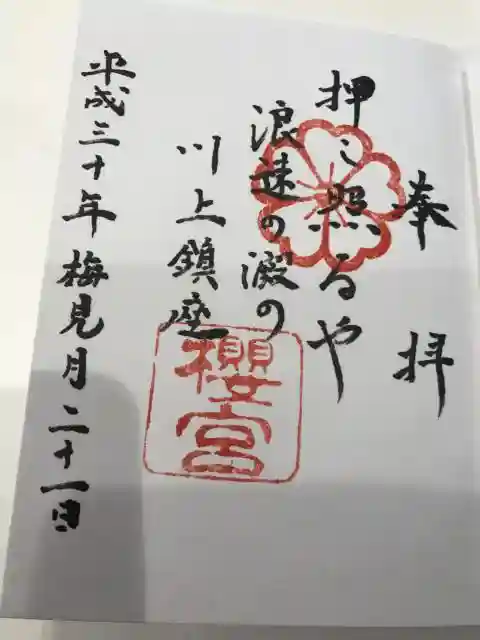 奉拝
押し照るや
浪速の澱の
川上鎮座
櫻宮
平成三十年梅見月二十一日